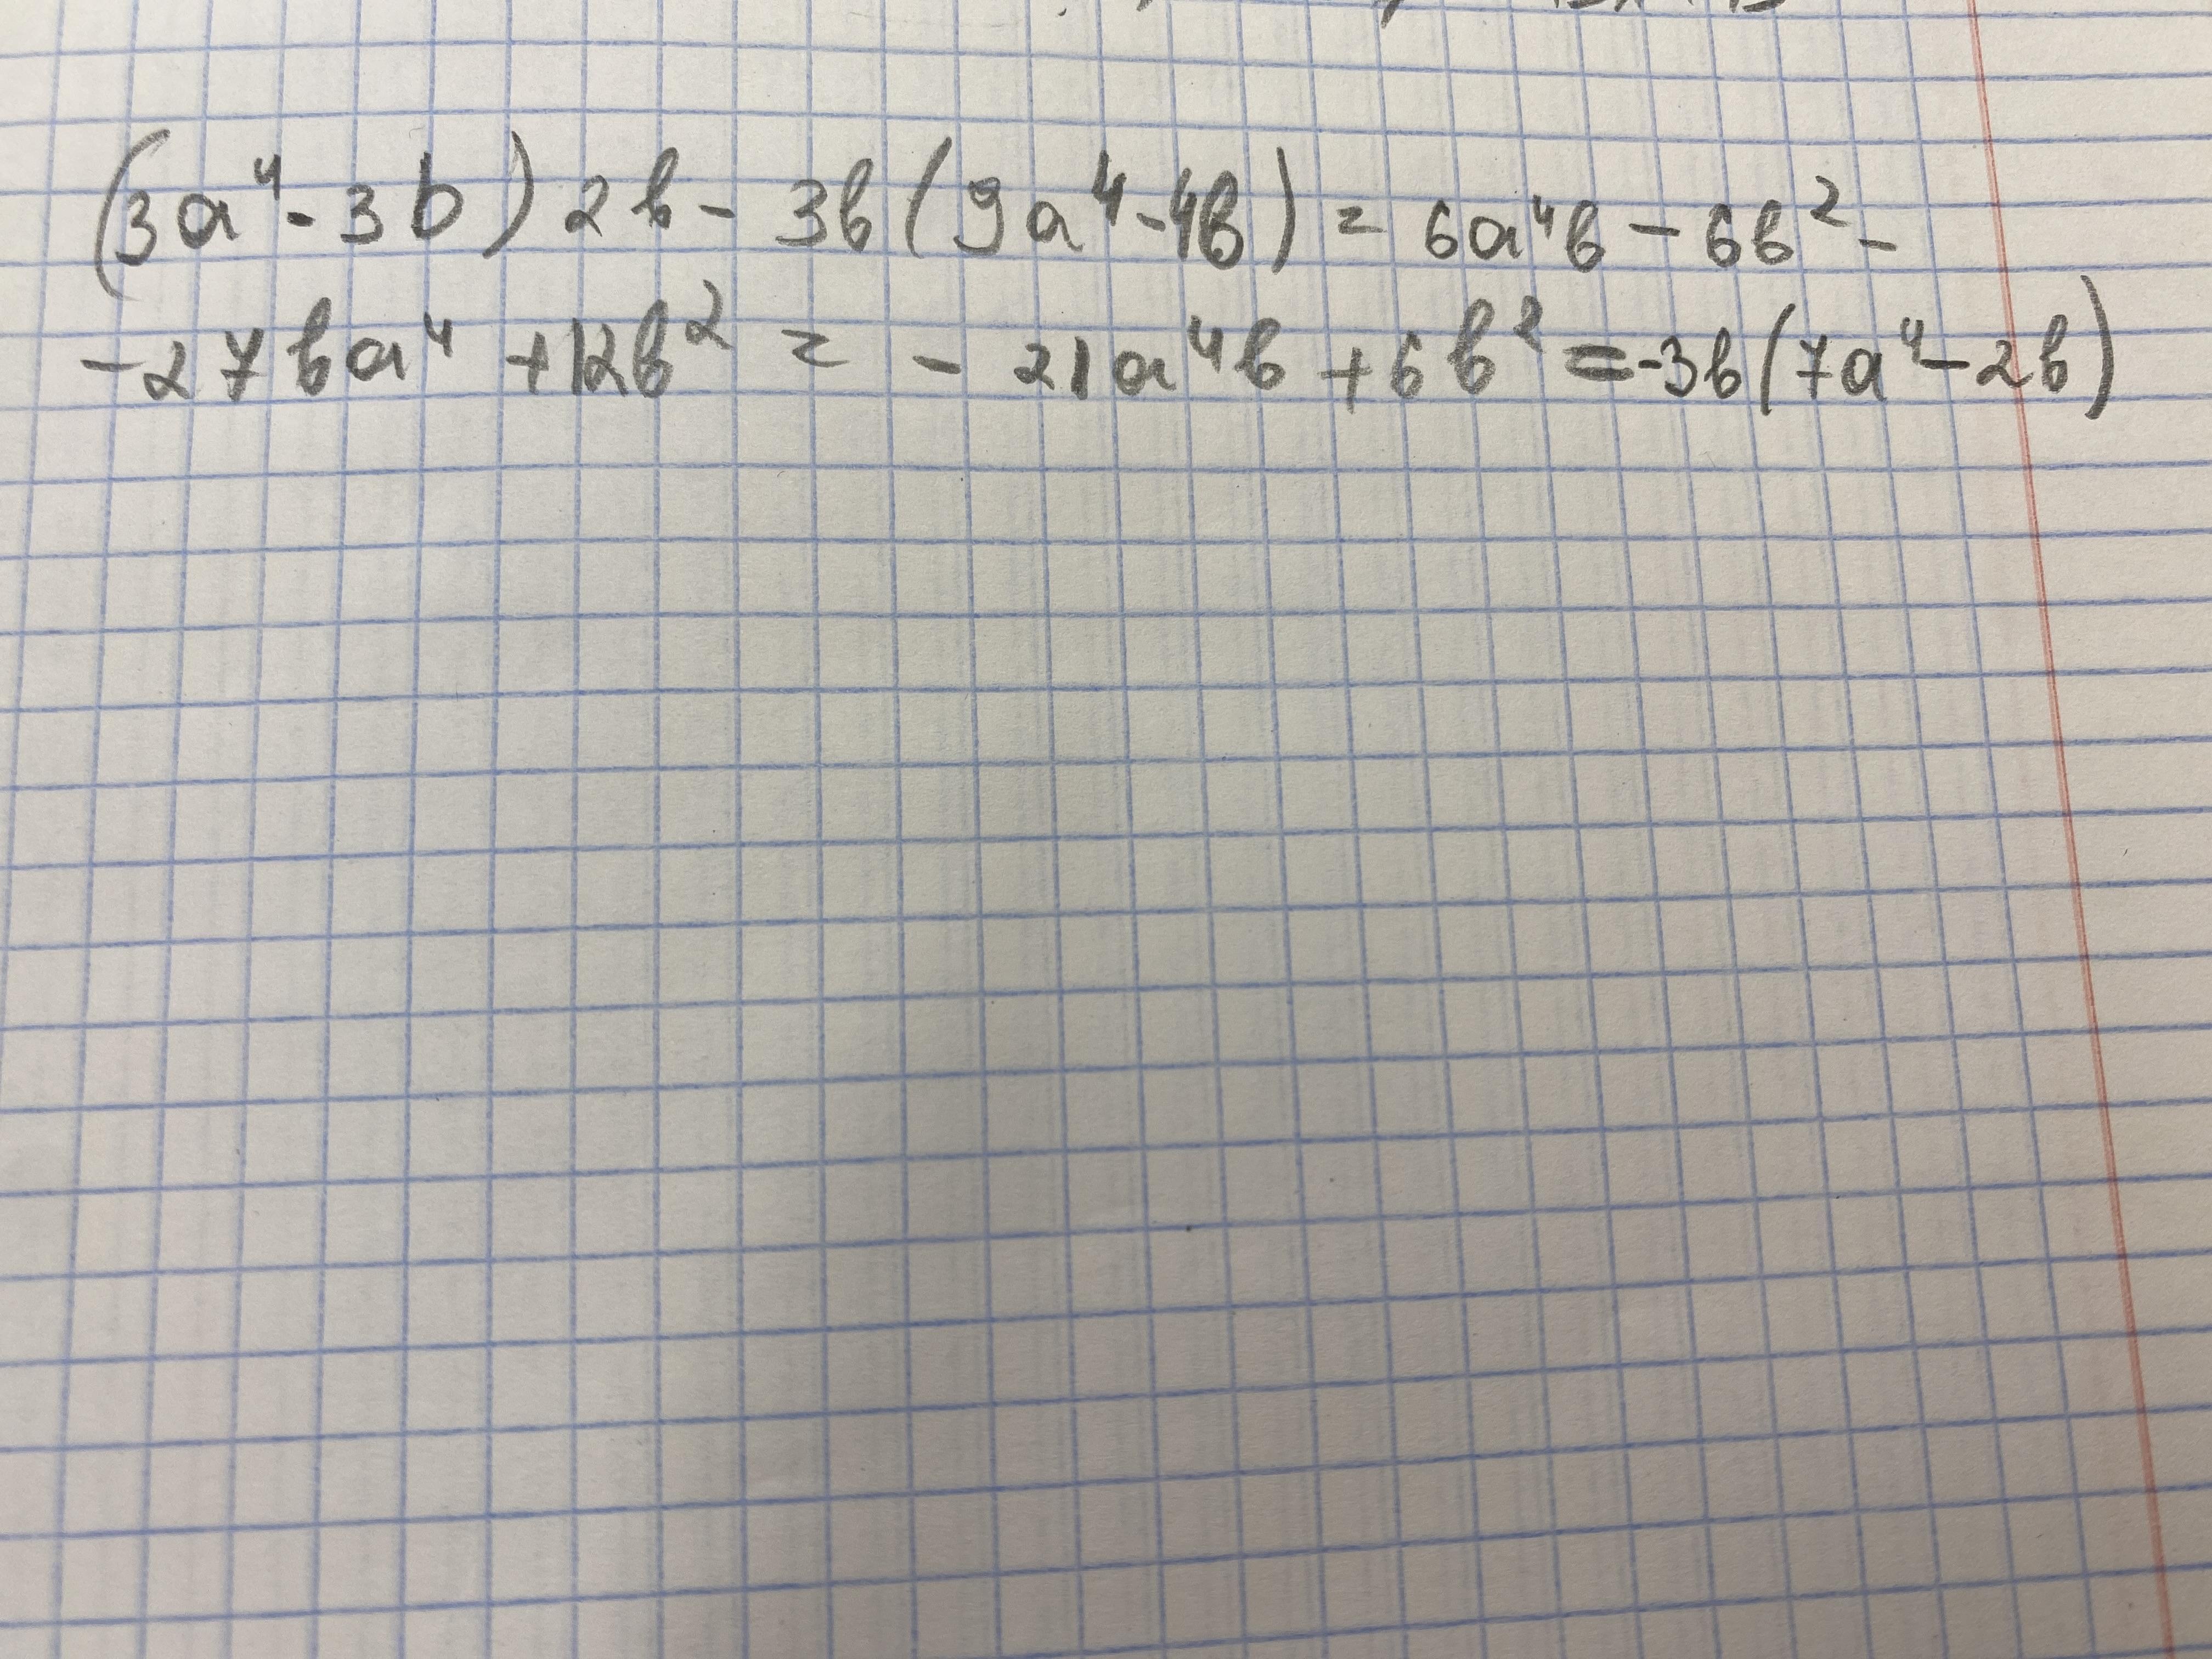 (3a⁴ - 3b) 2b - 3b (9a⁴ - 4b) = 6a⁴b - 6b² -
- 27ba⁴ + 12b² = - 21a⁴b + 6b² = -3b(7a⁴ - 2b)